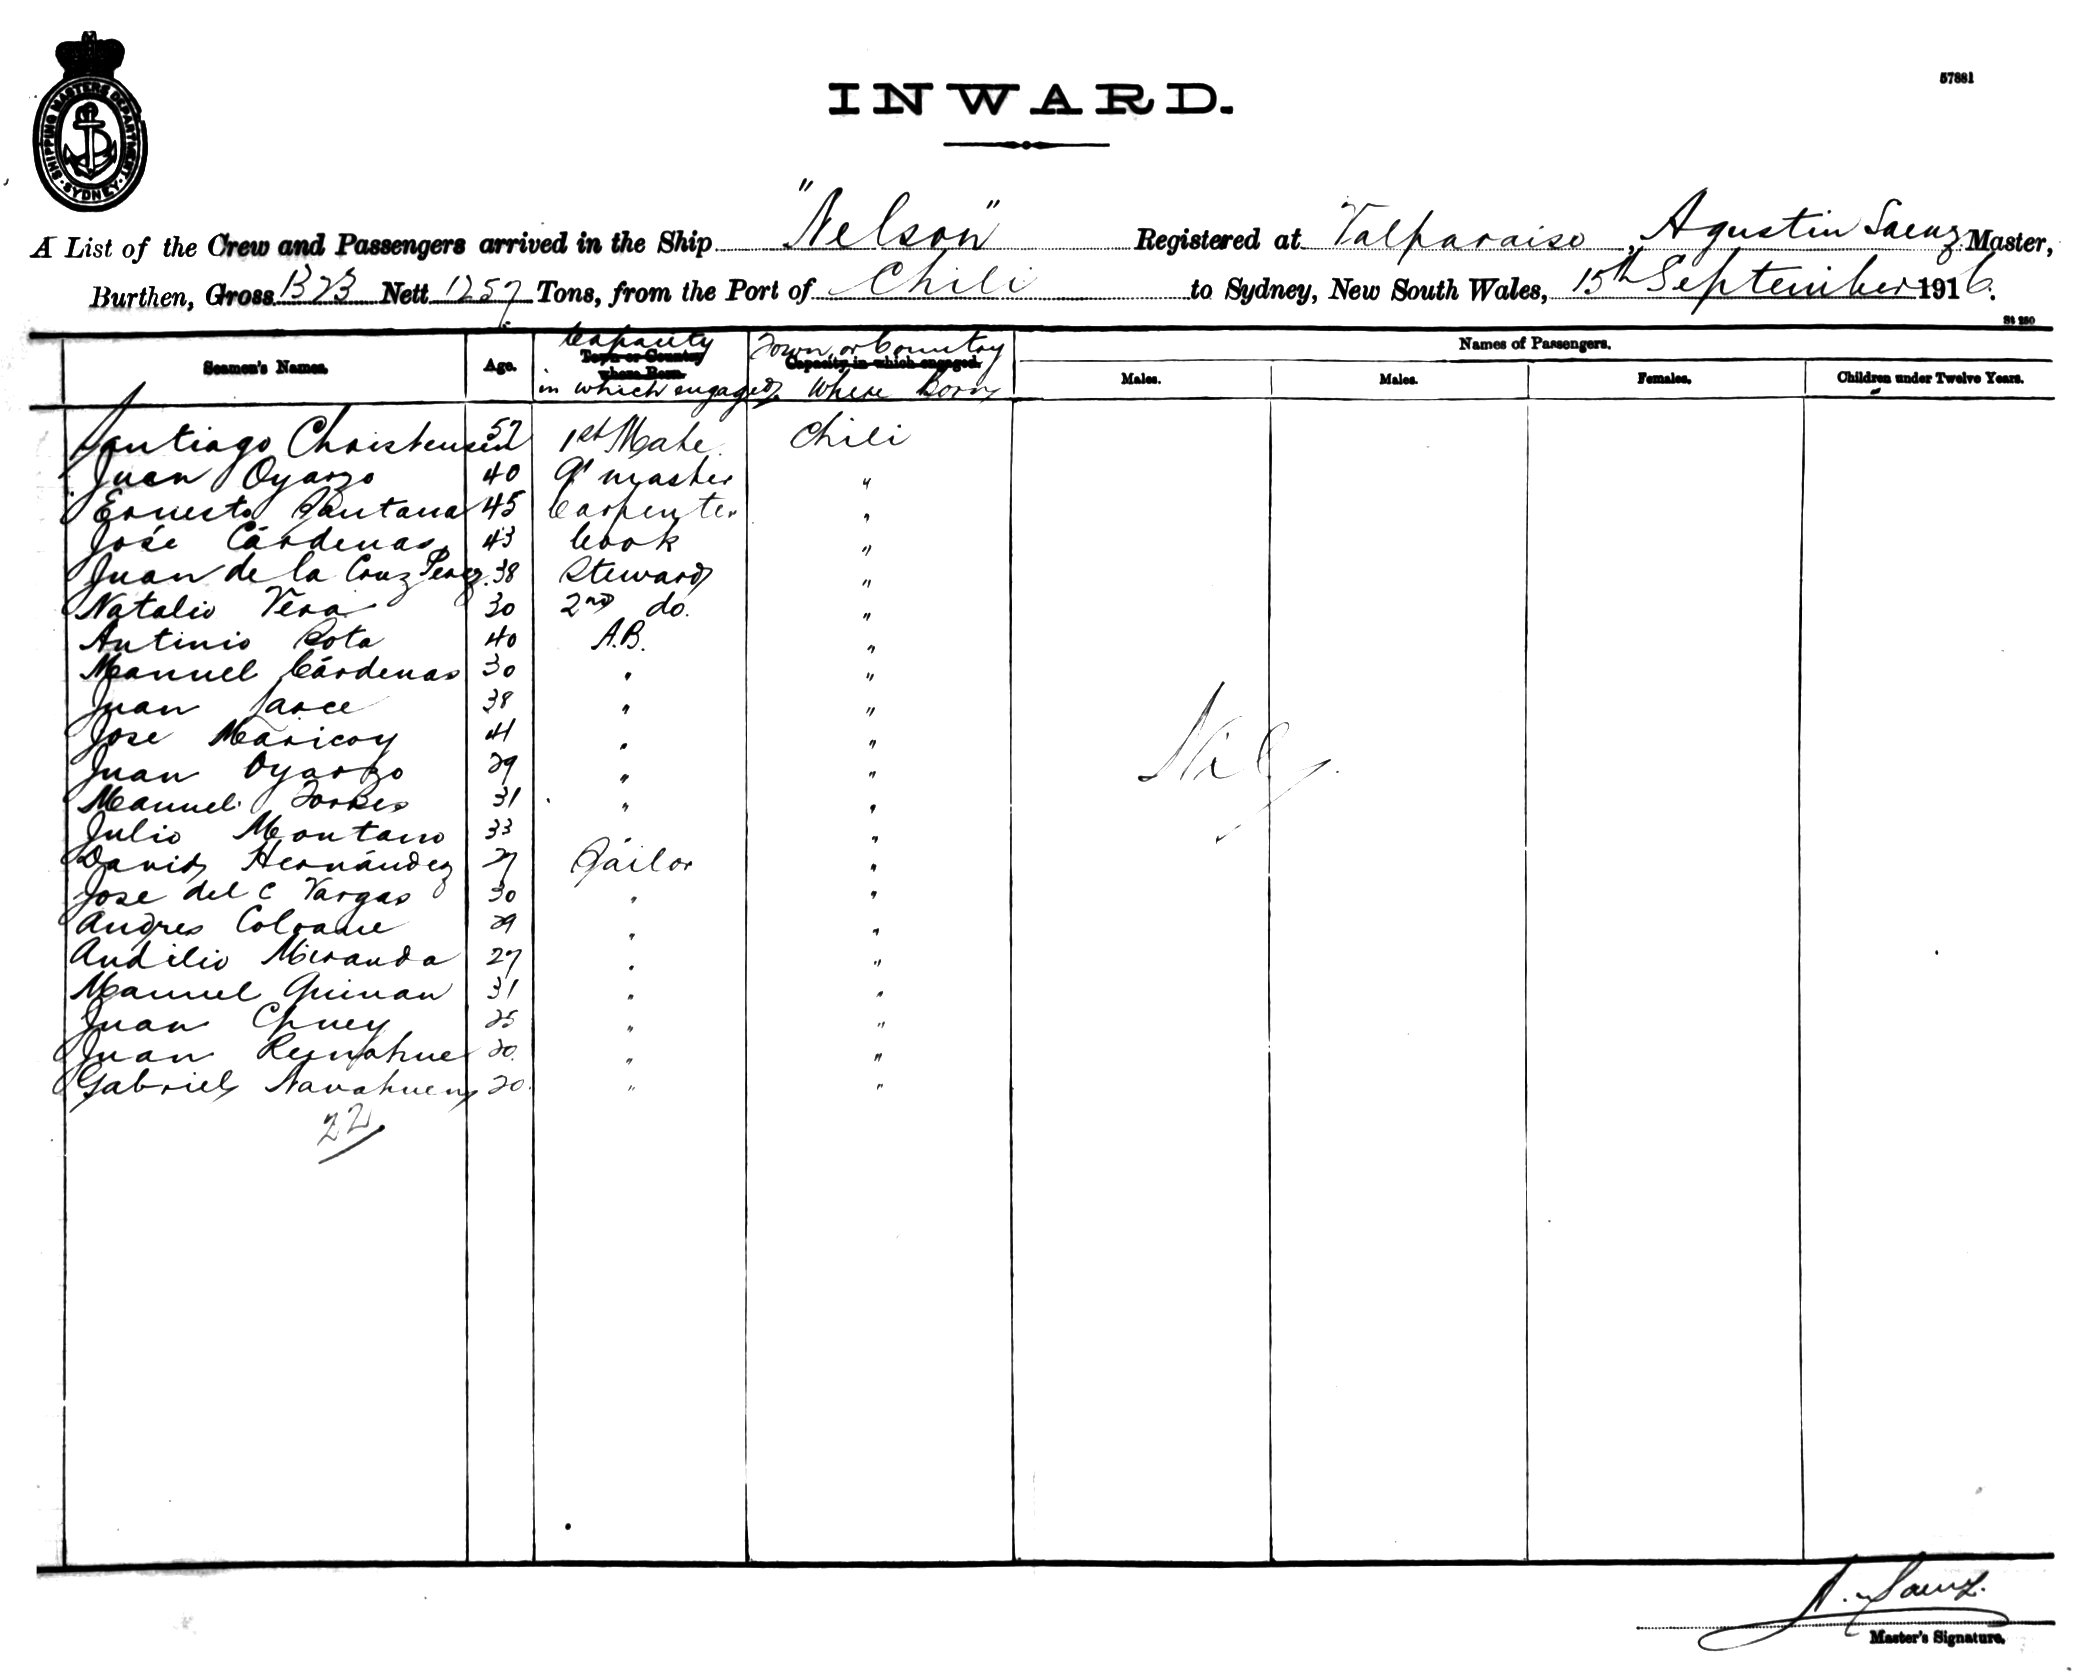 SHIPPING MASTERS DEPARTMENT
SYDNEY
57881
INWARD.
A List of the Crew and Passengers arrived in the Ship "Nelson" Registered at Valparaiso, Agustin Saenz Master,
Burthen, Gross 1323 Nett 1257 Tons, from the Port of Chili to Sydney, New South Wales, 15th September 1916.
St 250
Seamen's Names. Age. Capacity Town or Country where Born. in which engaged Town or Country Capacity in which engaged. Where Born Names of Passengers.
Males. Males. Females. Children under Twelve Years.
Santiago Christensen 57 1st Mate Chili
Juan Oyarzo 40 Qr master "
Ernesto Santana 45 Carpenter "
José Cárdenas 43 Cook "
Juan de la Cruz Perez 38 Steward "
Natalio Vera 30 2nd do. "
Antinio Sota 40 A.B. "
Manuel Cárdenas 30 " "
Juan 38 " "
Jose Maricoy 41 " "
Juan Oyarzo 29 " "
Manuel Torres 31 " "
Julio Montano 33 " "
David Hernández 27 Sailor "
Jose del C Vargas 30 " "
Andres Coloane 29 " "
Audilio Miranda 27 " "
Manuel Guinau 31 " "
Juan 25 " "
Juan 20 " "
Gabriel 20 " "
22
Nil
A. Saenz.
Master's Signature.